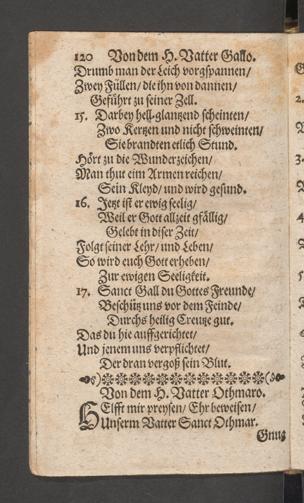 120 Von dem H. Vatter Gallo.
Drumb man der Leich vorgspannen/
Zwey Füllen/ die ihn von dannen/
Geführt zu seiner Zell.
15. Darbey hell-glantzend scheinten/
Zwo Kertzen und nicht schweinten/
Sie brandten etlich Stund.
Hört zu die Wunderzeichen/
Man thut eim Armen reichen/
Sein Kleyd/ und wird gesund.
16. Jetzt ist er ewig seelig/
Weil er Gott allzeit gfällig/
Gelebt in diser Zeit/
Folgt seiner Lehr/ und Leben/
So wird euch Gott erheben/
Zur ewigen Seeligkeit.
17. Sanct Gall du Gottes Freunde/
Beschütz uns vor dem Feinde/
Durchs heilig Creutze gut.
Das du hie auffgerichtet/
Und jenem uns verpflichtet/
Der dran vergoß sein Blut.
Von dem H. Vatter Othmaro.
HElfft mir preysen/ Ehr beweisen/
Unserm Vatter Sanct Othmar.
Gnutz